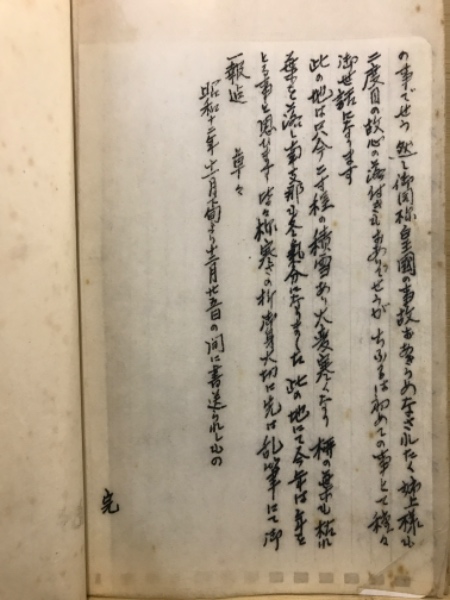 の事でせう 然し御同様皇國の事故お忘らめなされたく 姉上様も
二度目の故心の落付きもありませうが ちふるは初めての事とて種々
御世話になります
此の地は只今二寸程の積雪あり 大変寒くなり 柿の葉も枯れ
葉を落し南支那も冬気分になりました 此の地にて今年は年を
とる事と思ひます 皆々様寒さの折御身大切に 先は乱筆にて御
一報迄 草々
昭和十二年十一月上旬より十二月廿五日の間に書送られしもの
完